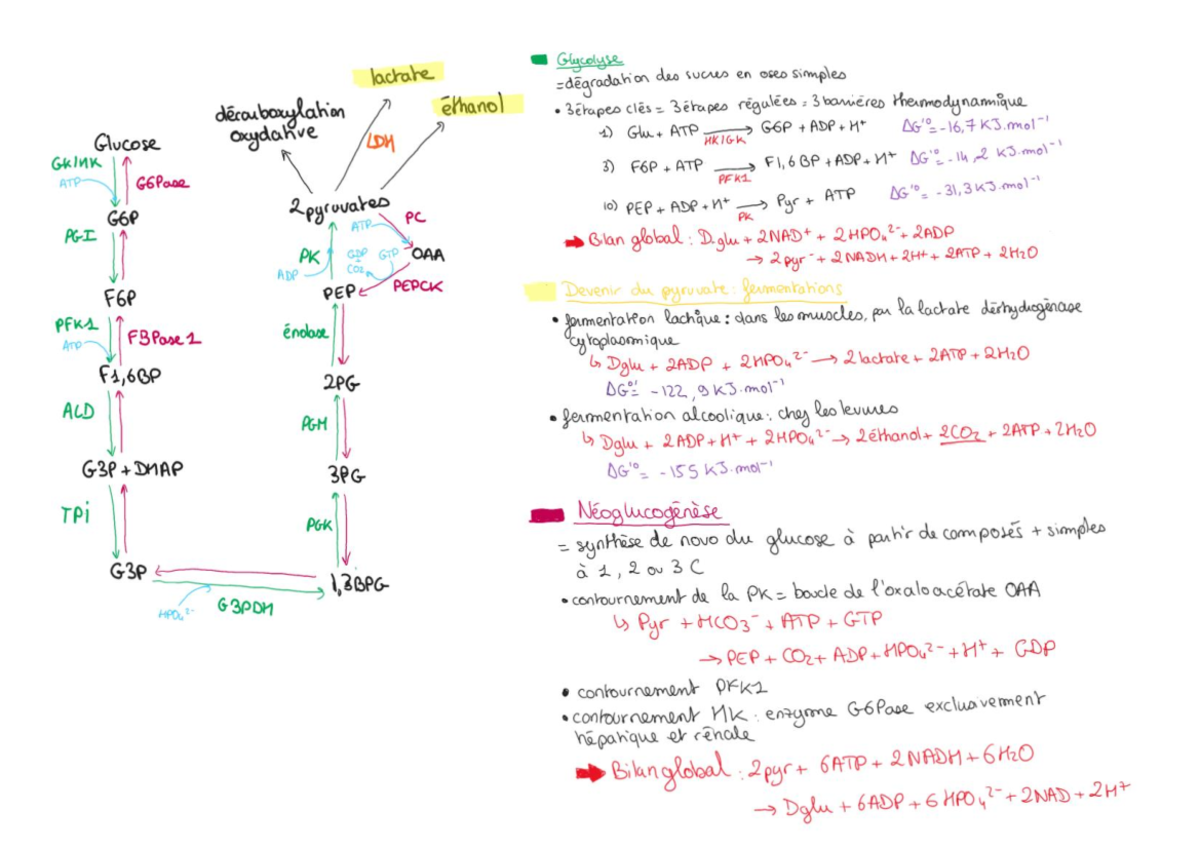 lactate
éthanol
décarboxylation
oxydative
LDH
Glucose
GK/HK
ATP
G6Pase
G6P
PGI
F6P
PFK1
ATP
FBPase 1
F1,6BP
ALD
G3P + DHAP
TPi
G3P
HPO₄²⁻
G3PDH
1,3BPG
PGK
3PG
PGM
2PG
énolase
PEP
PK
ADP
ATP
2 pyruvates
PC
GDP
CO₂
GTP
OAA
PEPCK
Glycolyse
= dégradation des sucres en oses simples
• 3 étapes clés = 3 étapes régulées = 3 barrières thermodynamique
1) Glu + ATP → G6P + ADP + H⁺ ΔG'° = -16,7 KJ.mol⁻¹
HK/GK
3) F6P + ATP → F1,6 BP + ADP + H⁺ ΔG'° = -14,2 KJ.mol⁻¹
PFK1
10) PEP + ADP + H⁺ → Pyr + ATP ΔG'° = -31,3 KJ.mol⁻¹
PK
➡ Bilan global : D.glu + 2NAD⁺ + 2HPO₄²⁻ + 2ADP
→ 2 pyr⁻ + 2NADH + 2H⁺ + 2ATP + 2H₂O
Devenir du pyruvate : fermentations
• fermentation lactique : dans les muscles, par la lactate déshydrogénase
cytoplasmique
↳ Dglu + 2ADP + 2HPO₄²⁻ → 2 lactate + 2ATP + 2H₂O
ΔG°' = -122,9 KJ.mol⁻¹
• fermentation alcoolique : chez les levures
↳ Dglu + 2ADP + H⁺ + 2HPO₄²⁻ → 2éthanol + 2CO₂ + 2ATP + 2H₂O
ΔG'° = -155 KJ.mol⁻¹
Néoglucogénèse
= synthèse de novo du glucose à partir de composés + simples
à 1, 2 ou 3 C
• contournement de la PK = boucle de l'oxaloacétate OAA
↳ Pyr + HCO₃⁻ + ATP + GTP
→ PEP + CO₂ + ADP + HPO₄²⁻ + H⁺ + GDP
• contournement PFK1
• contournement HK : enzyme G6Pase exclusivement
hépatique et rénale
➡ Bilan global : 2pyr + 6ATP + 2NADH + 6H₂O
→ Dglu + 6ADP + 6HPO₄²⁻ + 2NAD + 2H⁺